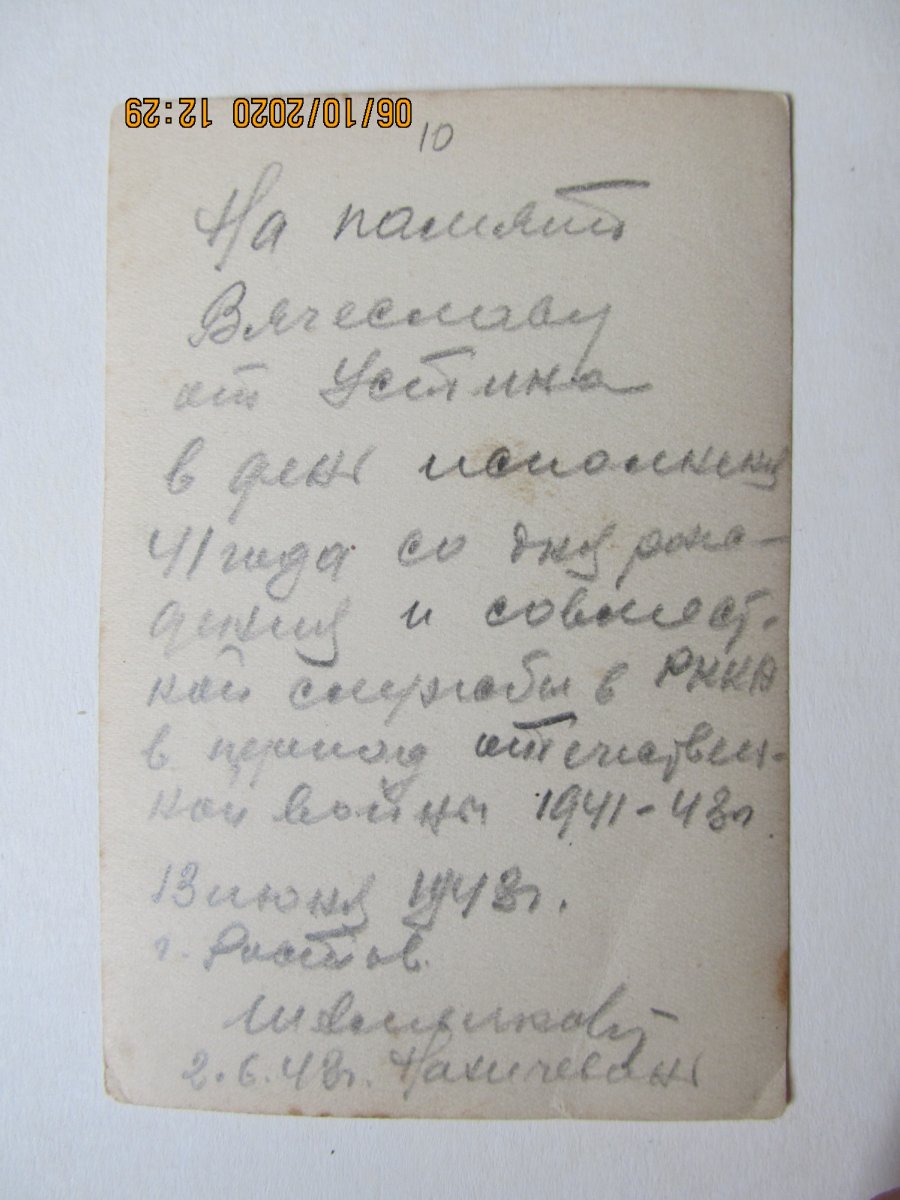 06/10/2020 12:29
10
На память
Вячеславу
от Устина
в день исполнения
41 года со дня рож-
дения и совмест-
ной службы в РККА
в период отечествен-
ной войны 1941-43г.
13 июня 1943г.
г. Ростов.
2.6.43г. Нахичевань